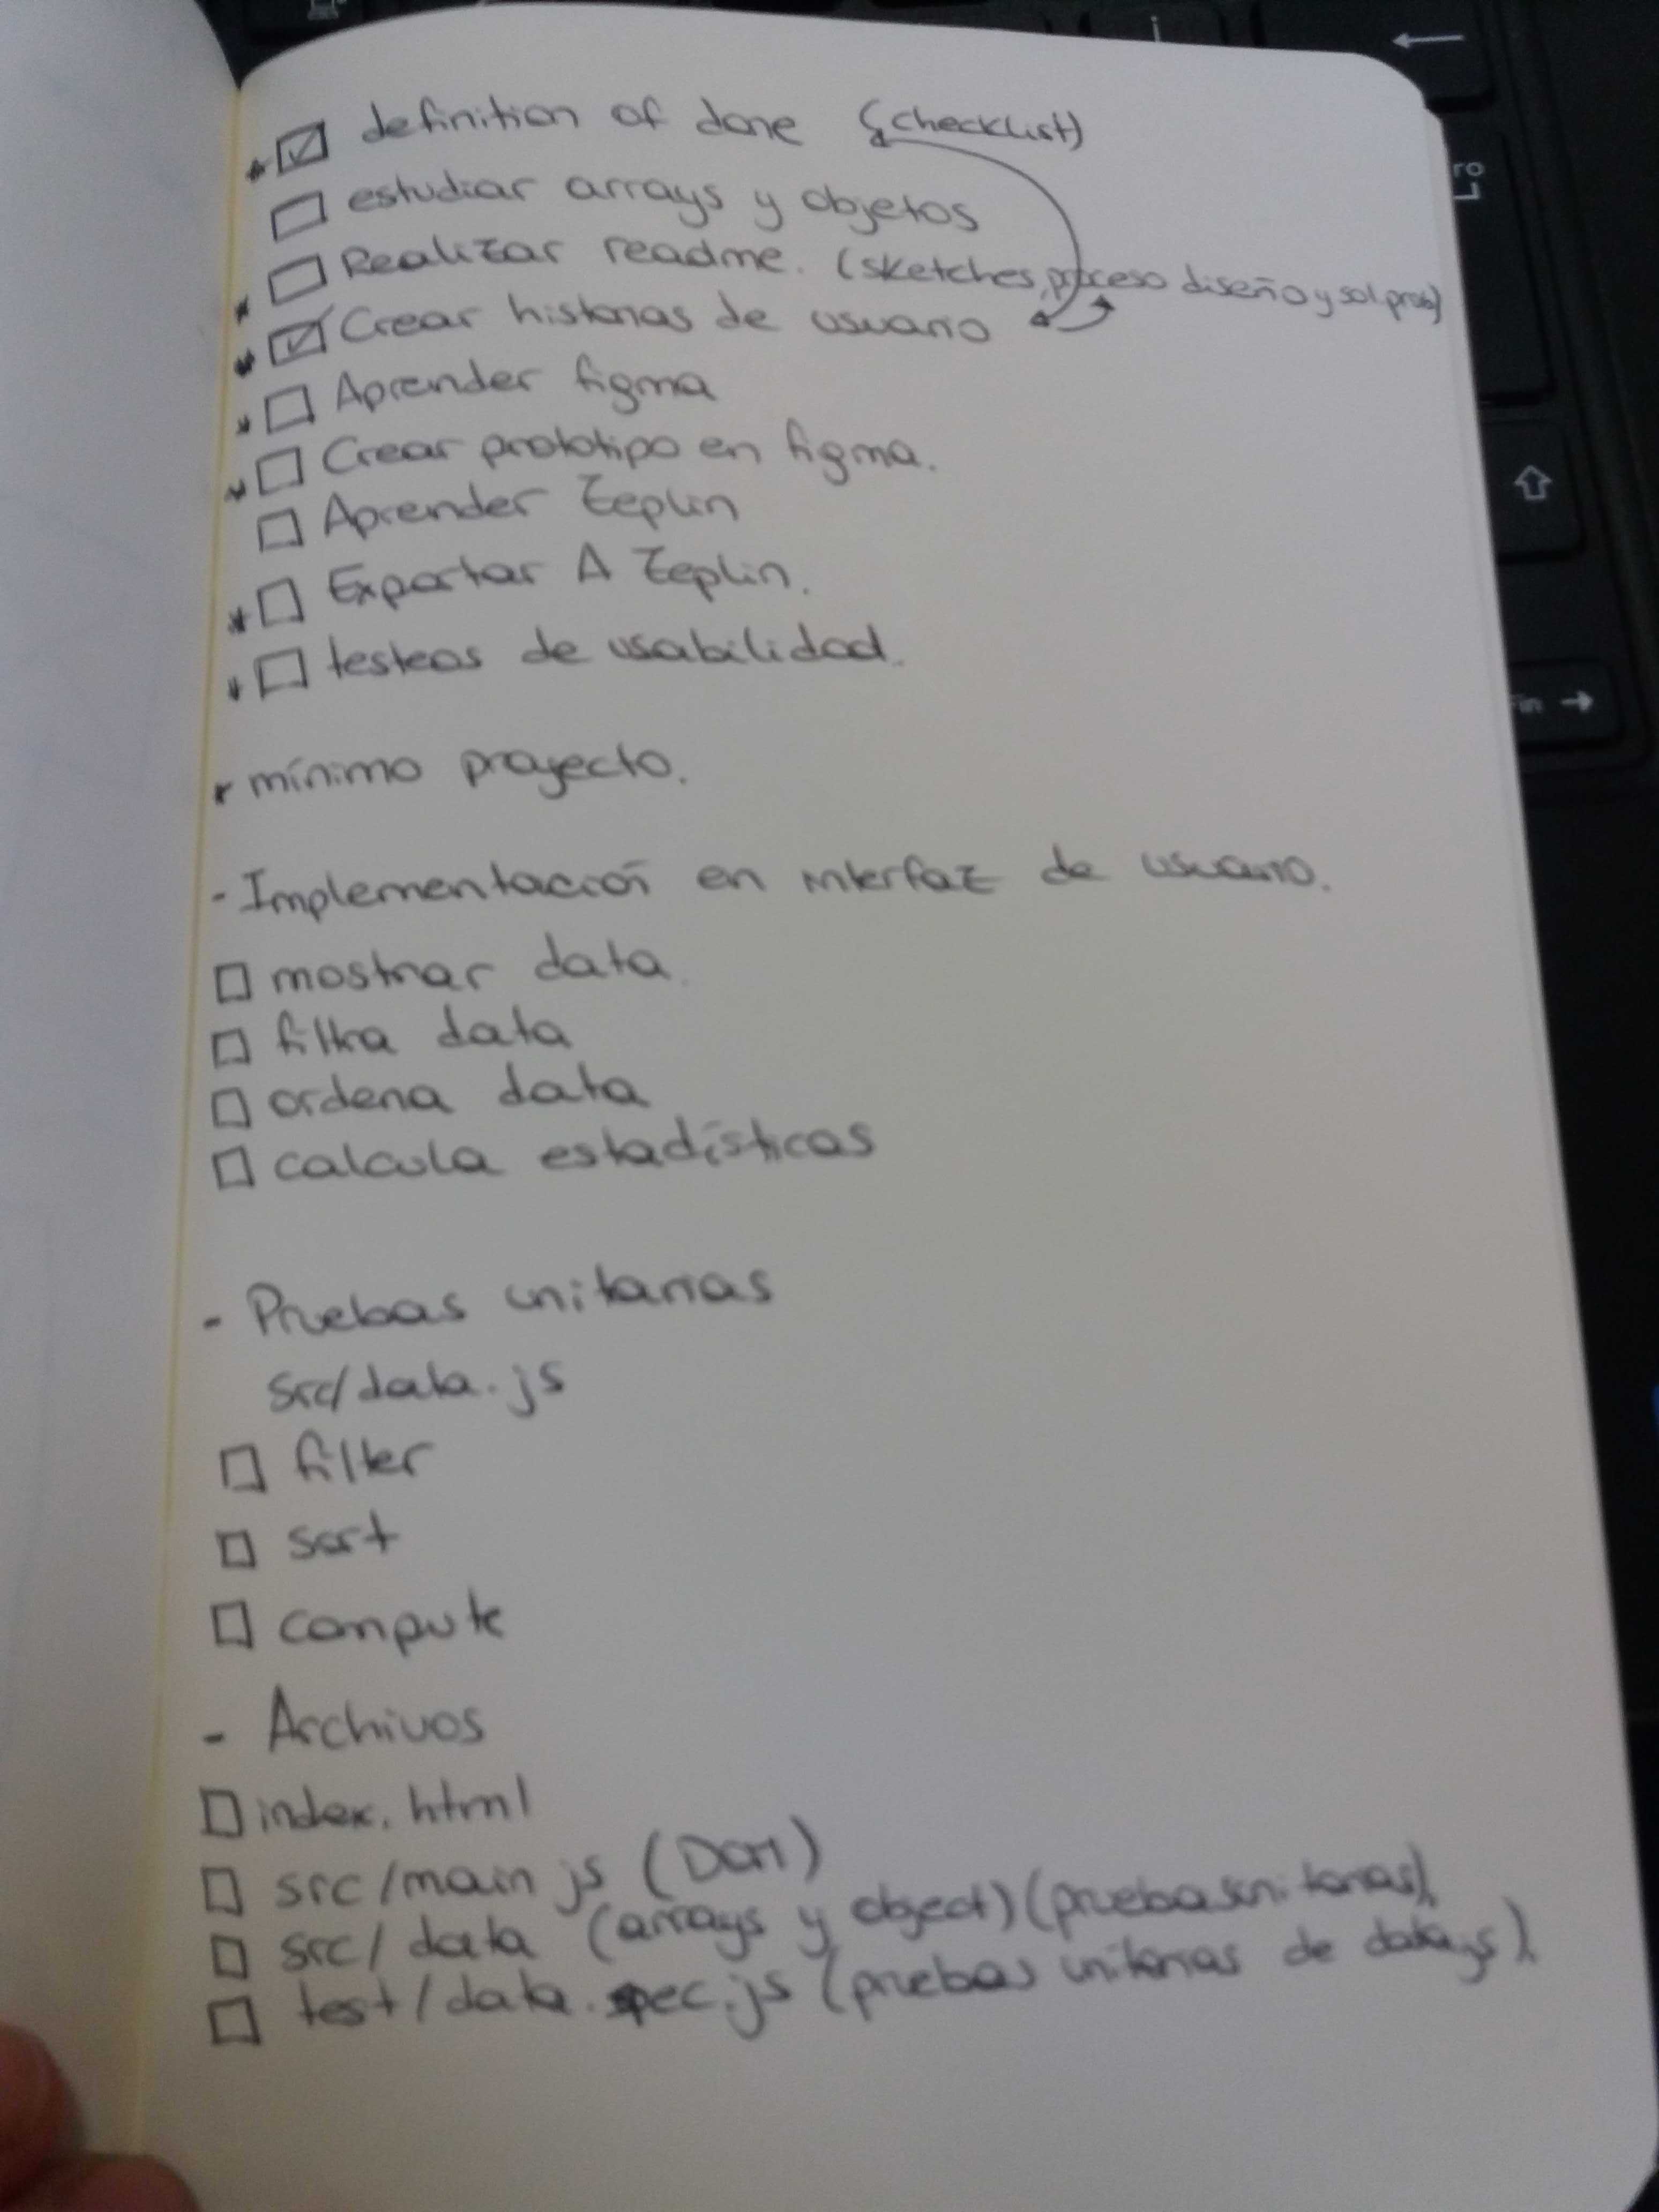 * ☑ definition of done (checklist)
☐ estudiar arrays y objetos
* ☐ Realizar readme. (sketches, proceso diseño y sol. prob)
* ☑ Crear historias de usuario
* ☐ Aprender figma
* ☐ Crear prototipo en figma.
☐ Aprender Zeplin
* ☐ Exportar A Zeplin.
* ☐ testeos de usabilidad.
* mínimo proyecto.
- Implementación en interfaz de usuario.
☐ mostrar data.
☐ filtra data
☐ ordena data
☐ calcula estadísticas
- Pruebas unitarias
src/data.js
☐ filter
☐ sort
☐ compute
- Archivos
☐ index.html
☐ src/main js (DOM)
☐ src/data (arrays y object) (pruebas unitarias).
☐ test/data.spec.js (pruebas unitarias de data.js).
Fin